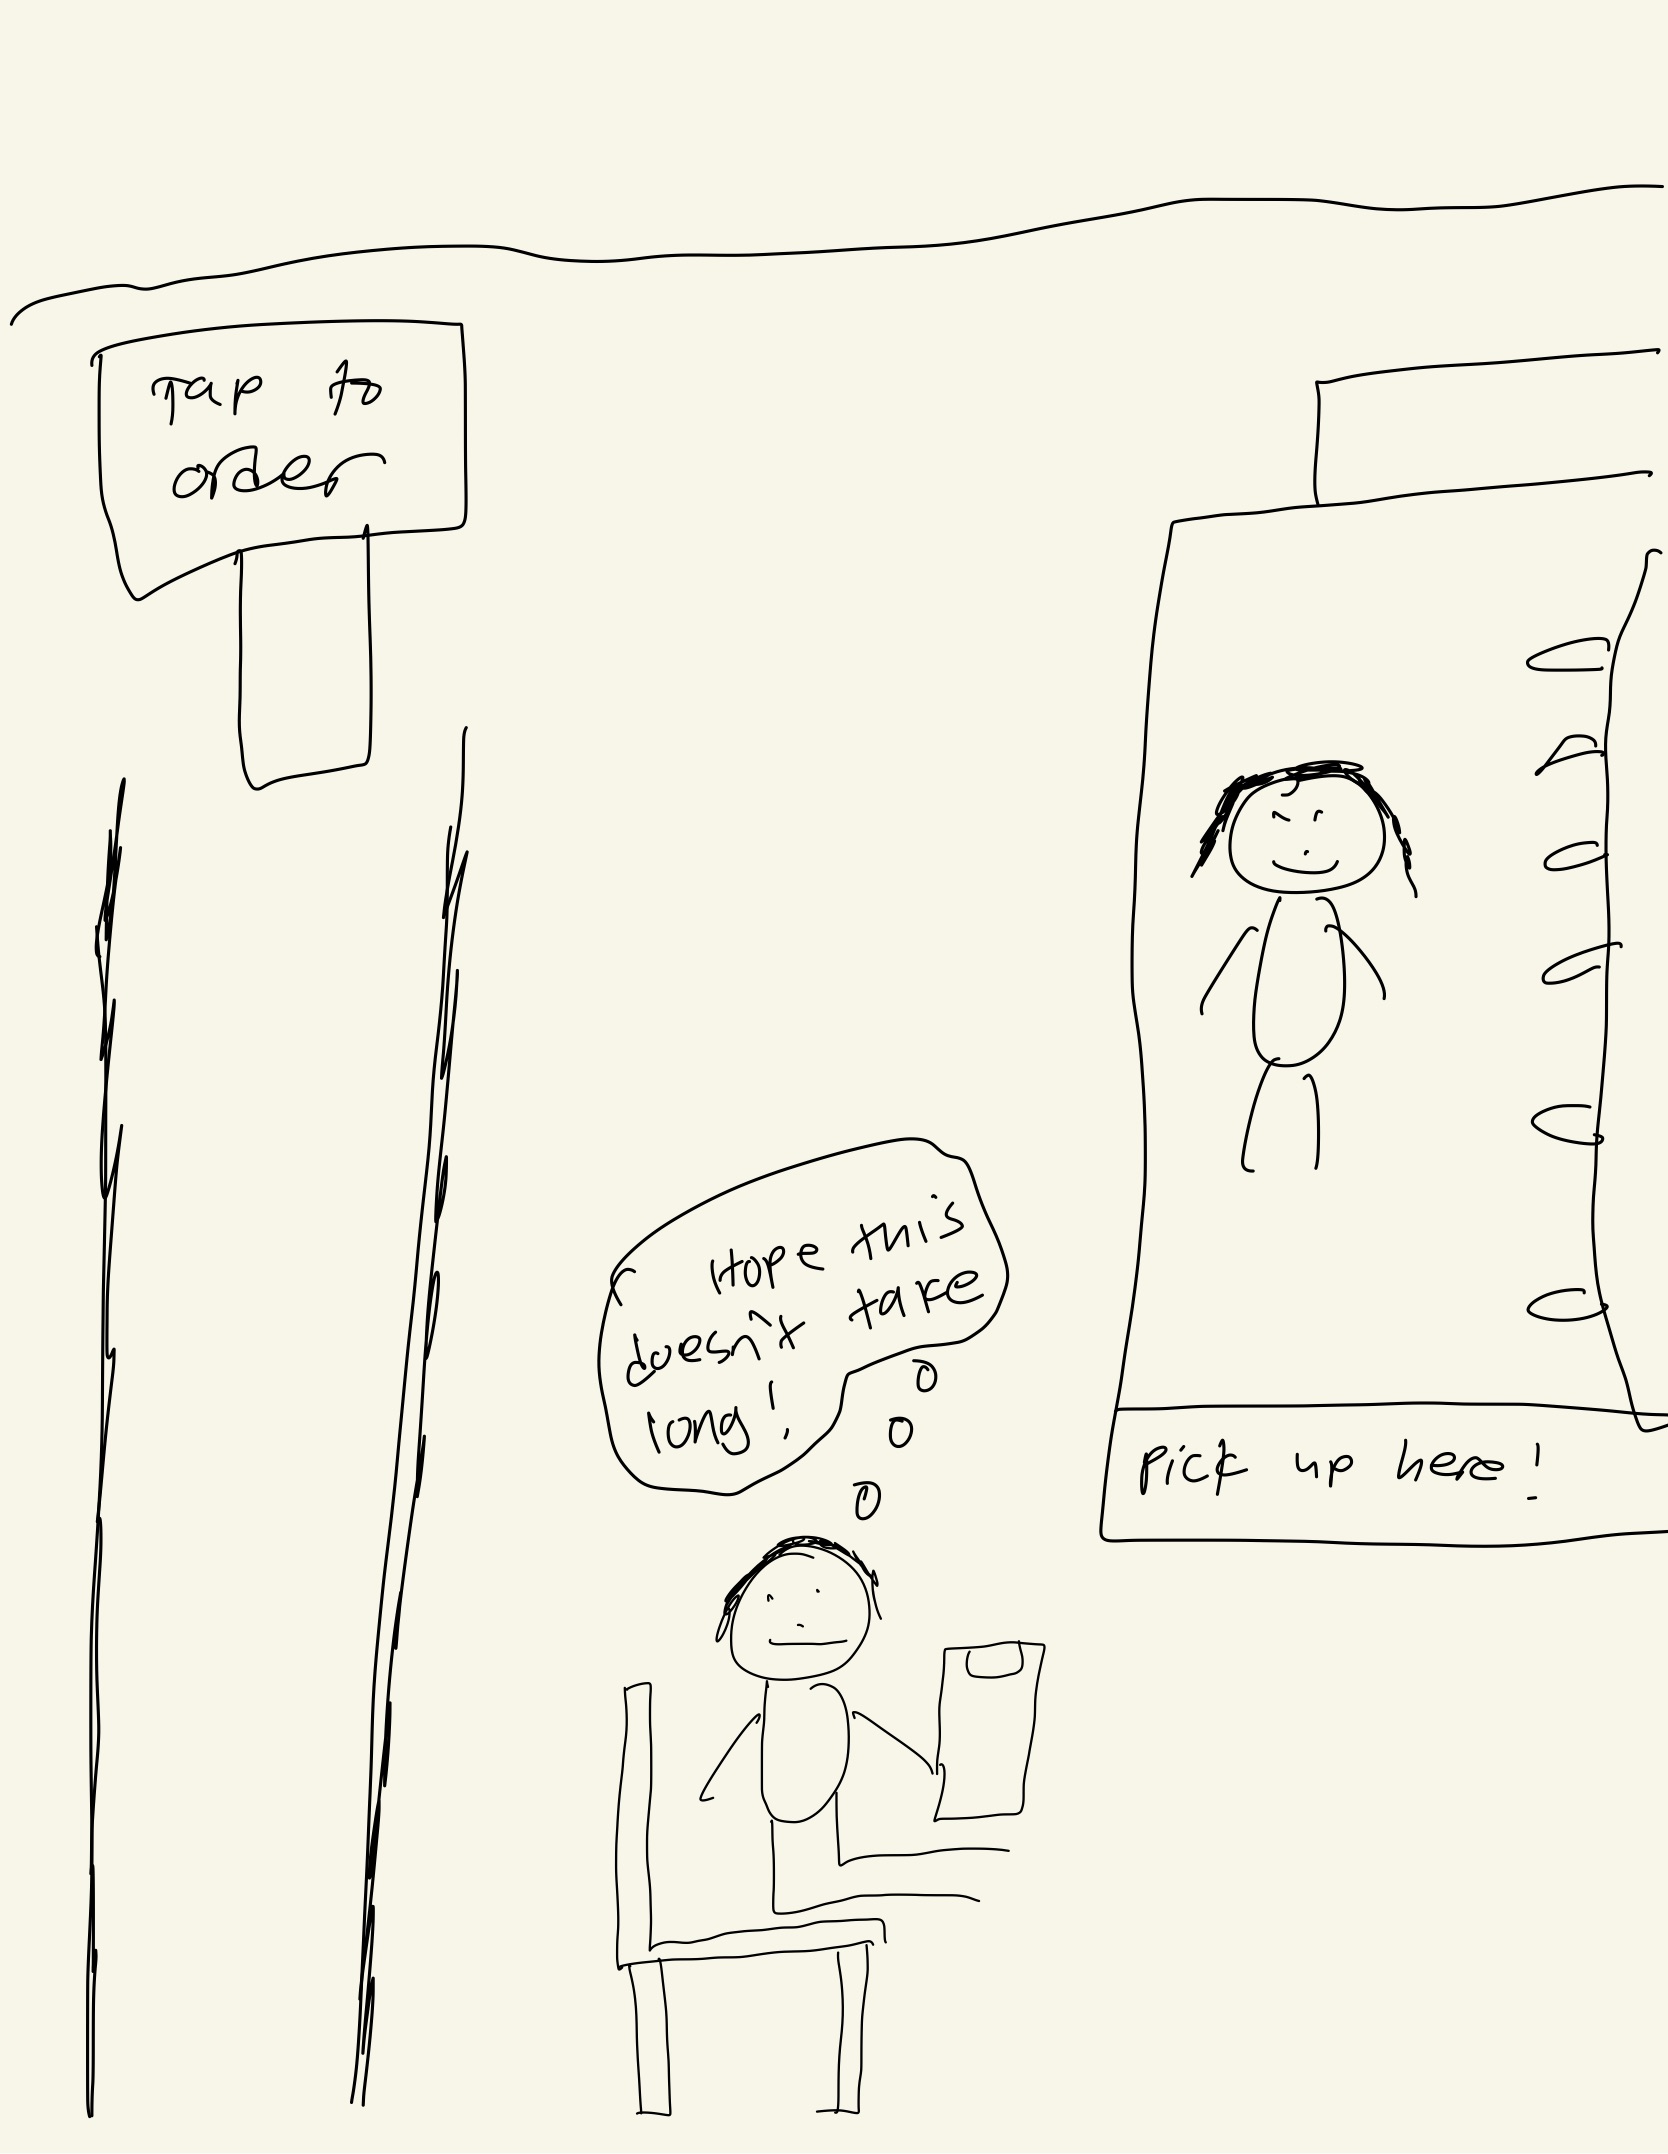 Tap to
order
Hope this
doesn't take
long!
Pick up here!